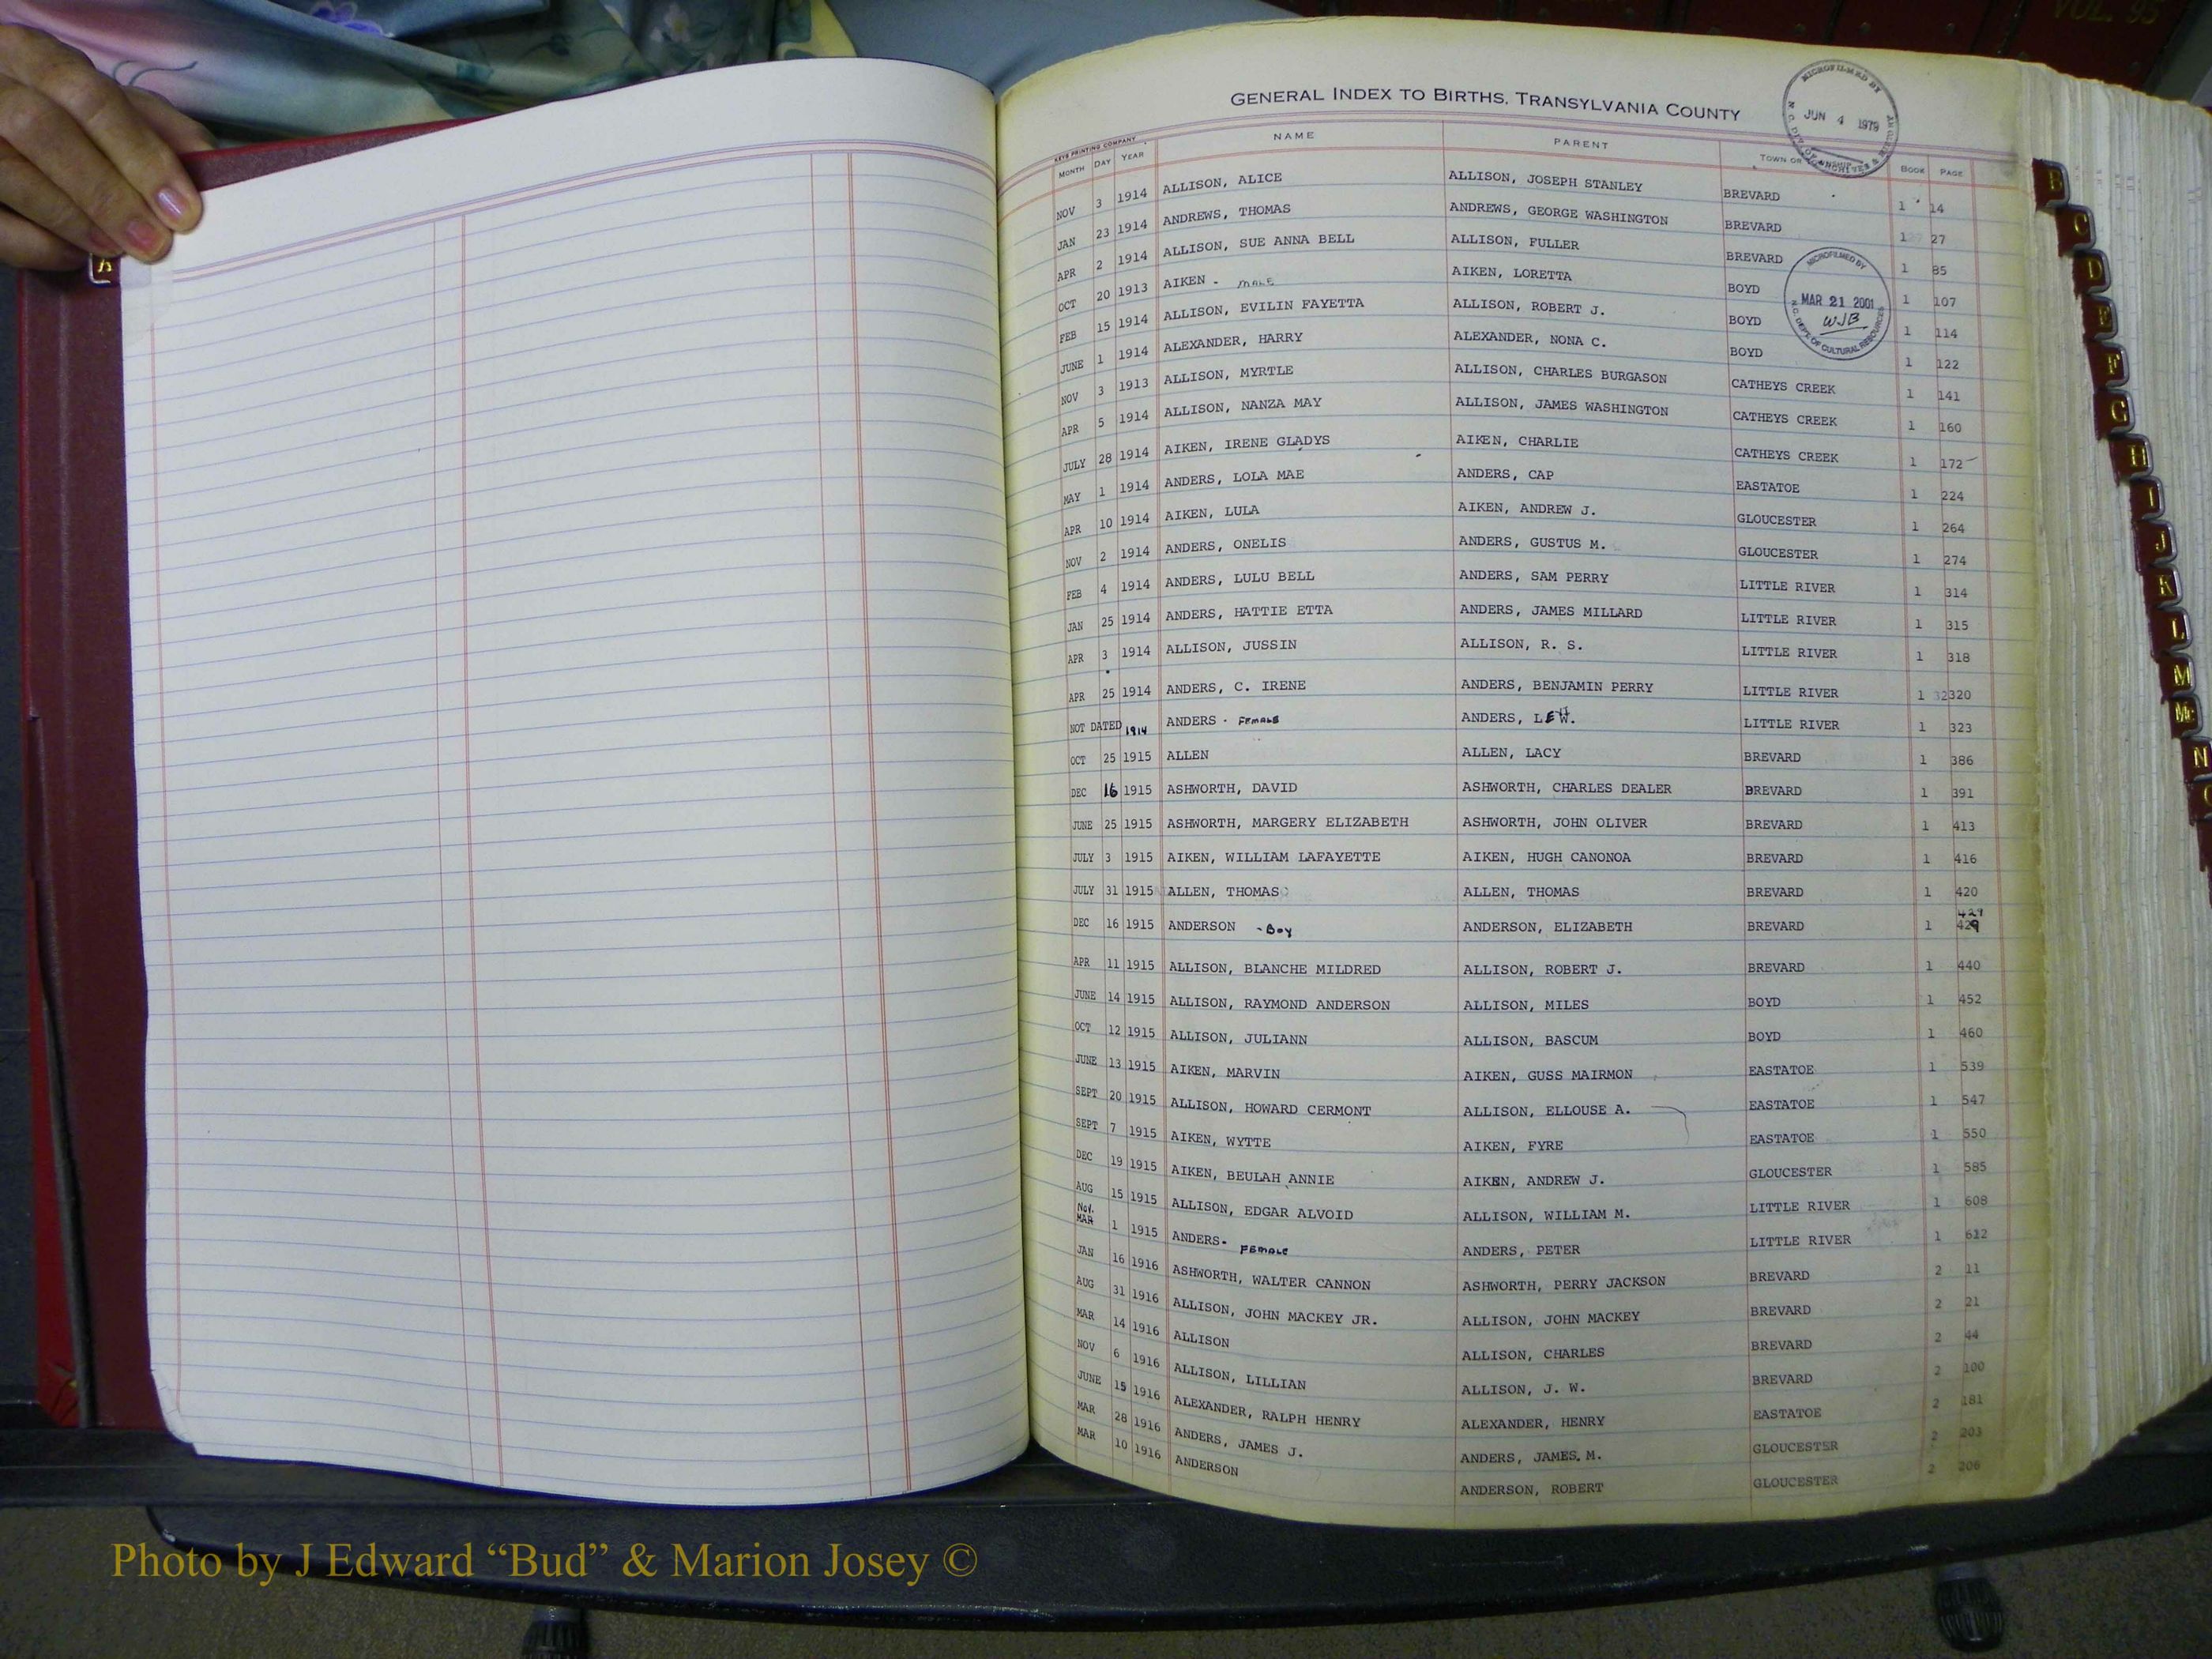 VOL. 95
GENERAL INDEX TO BIRTHS, TRANSYLVANIA COUNTY
MICROFILMED BY
JUN 4 1979
KEYS PRINTING COMPANY
MONTH DAY YEAR NAME PARENT TOWN OR BOOK PAGE
NOV 3 1914 ALLISON, ALICE ALLISON, JOSEPH STANLEY BREVARD 1 14
JAN 23 1914 ANDREWS, THOMAS ANDREWS, GEORGE WASHINGTON BREVARD 1 27
APR 2 1914 ALLISON, SUE ANNA BELL ALLISON, FULLER BREVARD 1 85
OCT 20 1913 AIKEN - MALE AIKEN, LORETTA BOYD 1 107
FEB 15 1914 ALLISON, EVILIN FAYETTA ALLISON, ROBERT J. BOYD 1 114
JUNE 1 1914 ALEXANDER, HARRY ALEXANDER, NONA C. BOYD 1 122
MICROFILMED BY
MAR 21 2001
WJB
N.C. DEPT. OF CULTURAL RESOURCES
NOV 3 1913 ALLISON, MYRTLE ALLISON, CHARLES BURGASON CATHEYS CREEK 1 141
APR 5 1914 ALLISON, NANZA MAY ALLISON, JAMES WASHINGTON CATHEYS CREEK 1 160
JULY 28 1914 AIKEN, IRENE GLADYS AIKEN, CHARLIE CATHEYS CREEK 1 172
MAY 1 1914 ANDERS, LOLA MAE ANDERS, CAP EASTATOE 1 224
APR 10 1914 AIKEN, LULA AIKEN, ANDREW J. GLOUCESTER 1 264
NOV 2 1914 ANDERS, ONELIS ANDERS, GUSTUS M. GLOUCESTER 1 274
FEB 4 1914 ANDERS, LULU BELL ANDERS, SAM PERRY LITTLE RIVER 1 314
JAN 25 1914 ANDERS, HATTIE ETTA ANDERS, JAMES MILLARD LITTLE RIVER 1 315
APR 3 1914 ALLISON, JUSSIN ALLISON, R. S. LITTLE RIVER 1 318
APR 25 1914 ANDERS, C. IRENE ANDERS, BENJAMIN PERRY LITTLE RIVER 1 320
NOT DATED 1914 ANDERS - FEMALE ANDERS, LITTLE RIVER 1 323
OCT 25 1915 ALLEN ALLEN, LACY BREVARD 1 386
DEC 16 1915 ASHWORTH, DAVID ASHWORTH, CHARLES DEALER BREVARD 1 391
JUNE 25 1915 ASHWORTH, MARGERY ELIZABETH ASHWORTH, JOHN OLIVER BREVARD 1 413
JULY 3 1915 AIKEN, WILLIAM LAFAYETTE AIKEN, HUGH CANONOA BREVARD 1 416
JULY 31 1915 ALLEN, THOMAS ALLEN, THOMAS BREVARD 1 420
429
DEC 16 1915 ANDERSON - Boy ANDERSON, ELIZABETH BREVARD 1 429
APR 11 1915 ALLISON, BLANCHE MILDRED ALLISON, ROBERT J. BREVARD 1 440
JUNE 14 1915 ALLISON, RAYMOND ANDERSON ALLISON, MILES BOYD 1 452
OCT 12 1915 ALLISON, JULIANN ALLISON, BASCUM BOYD 1 460
JUNE 13 1915 AIKEN, MARVIN AIKEN, GUSS MAIRMON EASTATOE 1 539
SEPT 20 1915 ALLISON, HOWARD CERMONT ALLISON, ELLOUSE A. EASTATOE 1 547
SEPT 7 1915 AIKEN, WYTTE AIKEN, FYRE EASTATOE 1 550
DEC 19 1915 AIKEN, BEULAH ANNIE AIKEN, ANDREW J. GLOUCESTER 1 585
AUG 15 1915 ALLISON, EDGAR ALVOID ALLISON, WILLIAM M. LITTLE RIVER 1 608
Nov.
MAR 1 1915 ANDERS- FEMALE ANDERS, PETER LITTLE RIVER 1 612
JAN 16 1916 ASHWORTH, WALTER CANNON ASHWORTH, PERRY JACKSON BREVARD 2 11
AUG 31 1916 ALLISON, JOHN MACKEY JR. ALLISON, JOHN MACKEY BREVARD 2 21
MAR 14 1916 ALLISON ALLISON, CHARLES BREVARD 2 44
NOV 6 1916 ALLISON, LILLIAN ALLISON, J. W. BREVARD 2 100
JUNE 15 1916 ALEXANDER, RALPH HENRY ALEXANDER, HENRY EASTATOE 2 181
MAR 28 1916 ANDERS, JAMES J. ANDERS, JAMES M. GLOUCESTER 2 203
MAR 10 1916 ANDERSON ANDERSON, ROBERT GLOUCESTER 2 206
A
B
C
D
E
F
G
H
I
J
K
L
M
Mc
N
O
Photo by J Edward “Bud” & Marion Josey ©